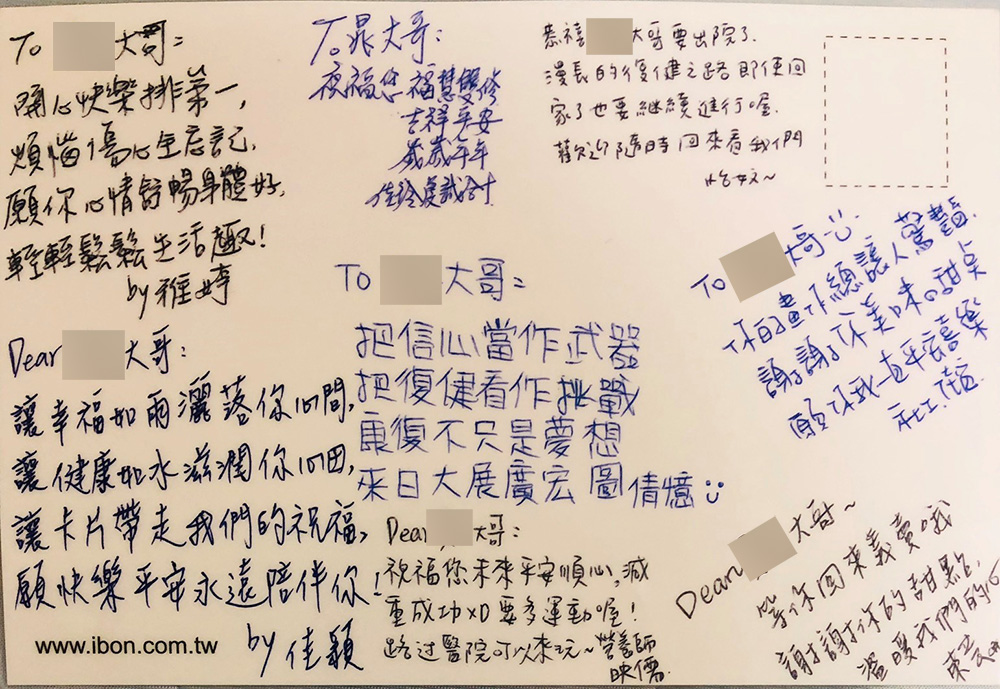 To 大哥:
開心快樂排第一,
煩惱傷心全忘記,
願你心情舒暢身體好,
輕輕鬆鬆生活趣!
by 雅婷
To 晁大哥:
祝福您 福慧雙修
吉祥平安
歲歲年年
佳玲虔誠合十
恭禧 大哥要出院了
漫長的復健之路即使回
家了也要繼續進行喔.
歡迎隨時回來看我們
怡如~
To 大哥:
把信心當作武器
把復健看作挑戰
康復不只是夢想
來日大展廣宏圖 倩憶
To 大哥
你的畫作總讓人驚豔.
謝謝你美味的甜點
願你我一直平安喜樂
社工
Dear 大哥:
讓幸福如雨灑落你心間,
讓健康如水滋潤你心田,
讓卡片帶走我們的祝福,
願快樂平安永遠陪伴你!
by 佳穎
www.ibon.com.tw
Dear 大哥:
祝福您未來平安順心,減
重成功XD要多運動喔!
路过醫院可以來玩~營養師
映儒
Dear 大哥~
等你回來義賣哦
謝謝你的甜點,
溫暖我們的心